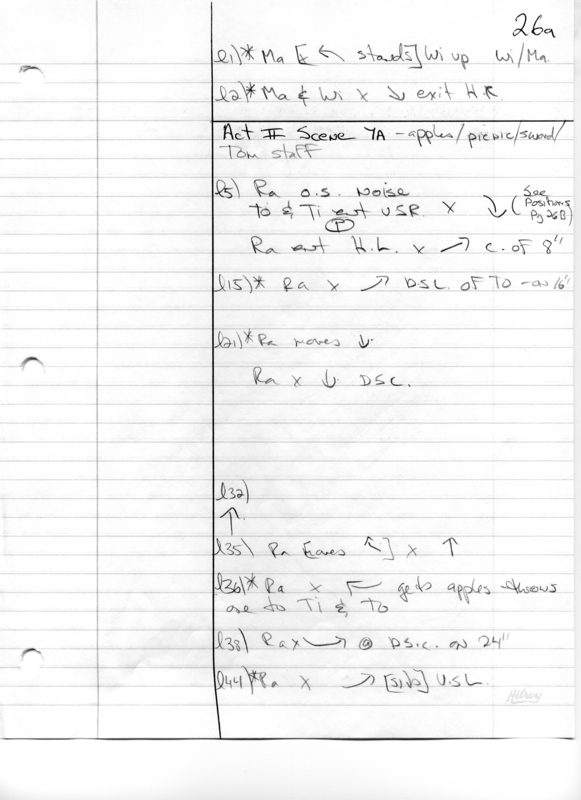 26a
l1)* Ma [x ↖ stands] Wi up Wi/Ma.
l2)* Ma & Wi x ↘ exit H.R.
Act II Scene 7A - apples/picnic/sword/
Tom staff
l5) Ra o.s. Noise
To & Ti ent USR. x ↘ (See Positions Pg 26B)
P
Ra ent H.L. x ↗ C. of 8"
l15)* Ra x ↗ DSL. OF TO - on 16"
l21)* Ra moves ↓
Ra x ↓ DSC.
l32)
↑
l35) Ra [ ↖] x ↑
l36)* Ra x ↖ gets apples throws
one to Ti & To
l38) Ra x ↗ @ D.S.C. on 24"
l44)* Ra x ↗ U.S.L.
Hilroy